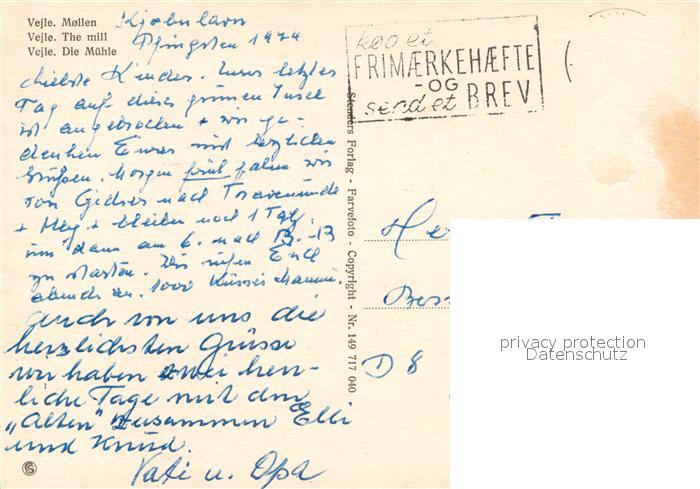 Vejle. Møllen
Vejle. The mill
Vejle. Die Mühle
Kjobnhavn
Pfingsten 1974
Liebste Kinder. Unser letzter
Tag auf dieser grünen Insel
ist angebrochen + wir ge-
denken Eurer mit herzlichen
Grüßen. Morgen früh fahren wir
von Gedser nach Travemünde
+ Hbg + bleiben noch 1 Tag,
um dann am 6. nach
zu starten. Wir rufen Euch
abends an. 1000 Küsse
Auch von uns die
herzlichsten Grüsse
wir haben zwei herr-
liche Tage mit den
„Alten" zusammen Elli
und Knud.
Vati u. Opa
køb et
FRIMÆRKEHÆFTE
-OG
send et BREV
Stenders Forlag - Farvefoto - Copyright - Nr. 149 717 040
D 8
privacy protection
Datenschutz